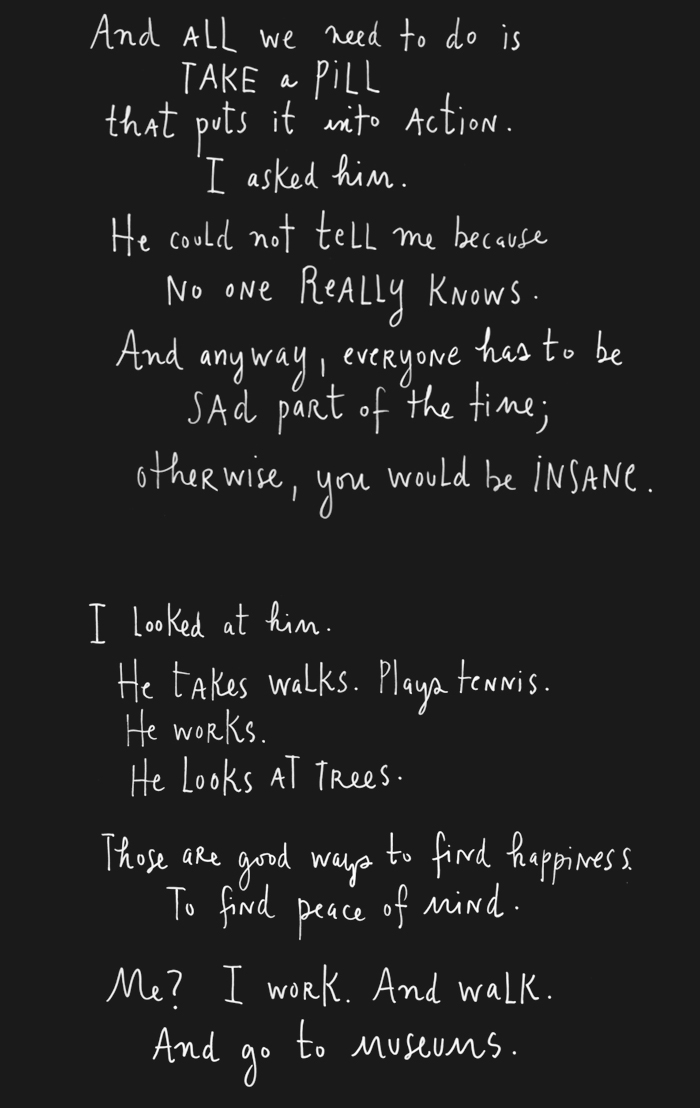 And ALL we need to do is
TAKE a PiLL
that puts it into Action.
I asked him.
He could not tell me because
No one Really knows.
And anyway, everyone has to be
SAd part of the time;
otherwise, you would be iNSANe.
I Looked at him.
He takes walks. Plays tennis.
He works.
He Looks AT Trees.
Those are good ways to find happiness.
To find peace of mind.
Me? I work. And walk.
And go to museums.